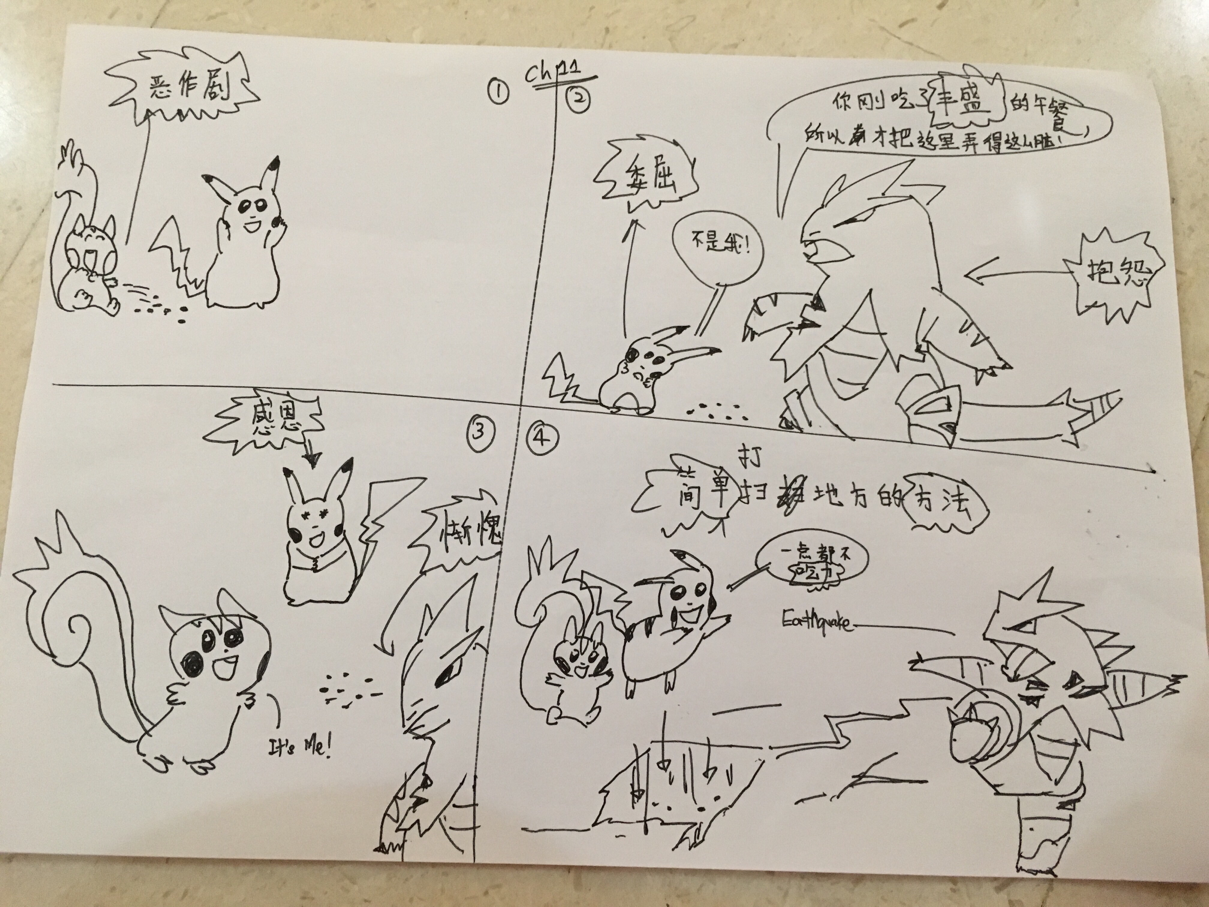 Ch 11
①
恶作剧
②
你刚吃了丰盛的午餐
所以才把这里弄得这么脏!
委屈
不是我!
抱怨
③
感恩
惭愧
It's Me!
④
简单打扫地方的方法
一点都不
吃力
Earthquake